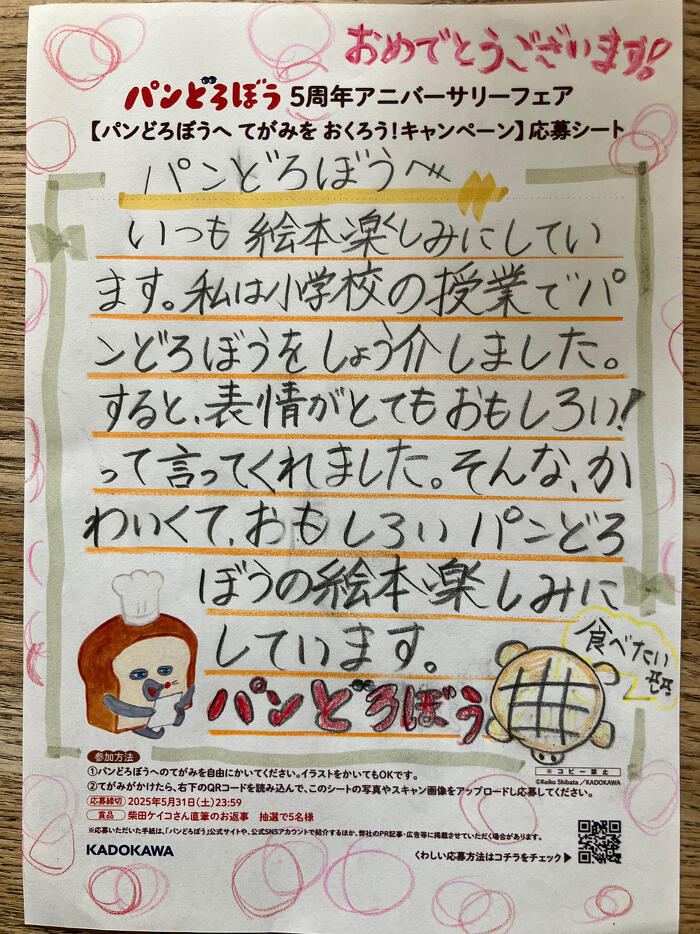 おめでとうございます!
パンどろぼう 5周年アニバーサリーフェア
【パンどろぼうへ てがみを おくろう!キャンペーン】応募シート
パンどろぼうへ
いつも絵本楽しみにしてい
ます。私は小学校の授業でパ
ンどろぼうをしょう介しました。
すると、表情がとてもおもしろい!
って言ってくれました。そんな、か
わいくて、おもしろいパンどろ
ぼうの絵本楽しみに
しています。
食べたい
パンどろぼう
参加方法
※コピー禁止
©Keiko Shibata/KADOKAWA
①パンどろぼうへのてがみを自由にかいてください。イラストをかいてもOKです。
②てがみがかけたら、右下のQRコードを読み込んで、このシートの写真やスキャン画像をアップロードし応募してください。
応募締切 2025年5月31日(土)23:59
賞品 柴田ケイコさん直筆のお返事 抽選で5名様
※応募いただいた手紙は、「パンどろぼう」公式サイトや、公式SNSアカウントで紹介するほか、弊社のPR記事・広告等に掲載させていただく場合があります。
KADOKAWA
くわしい応募方法はコチラをチェック▶